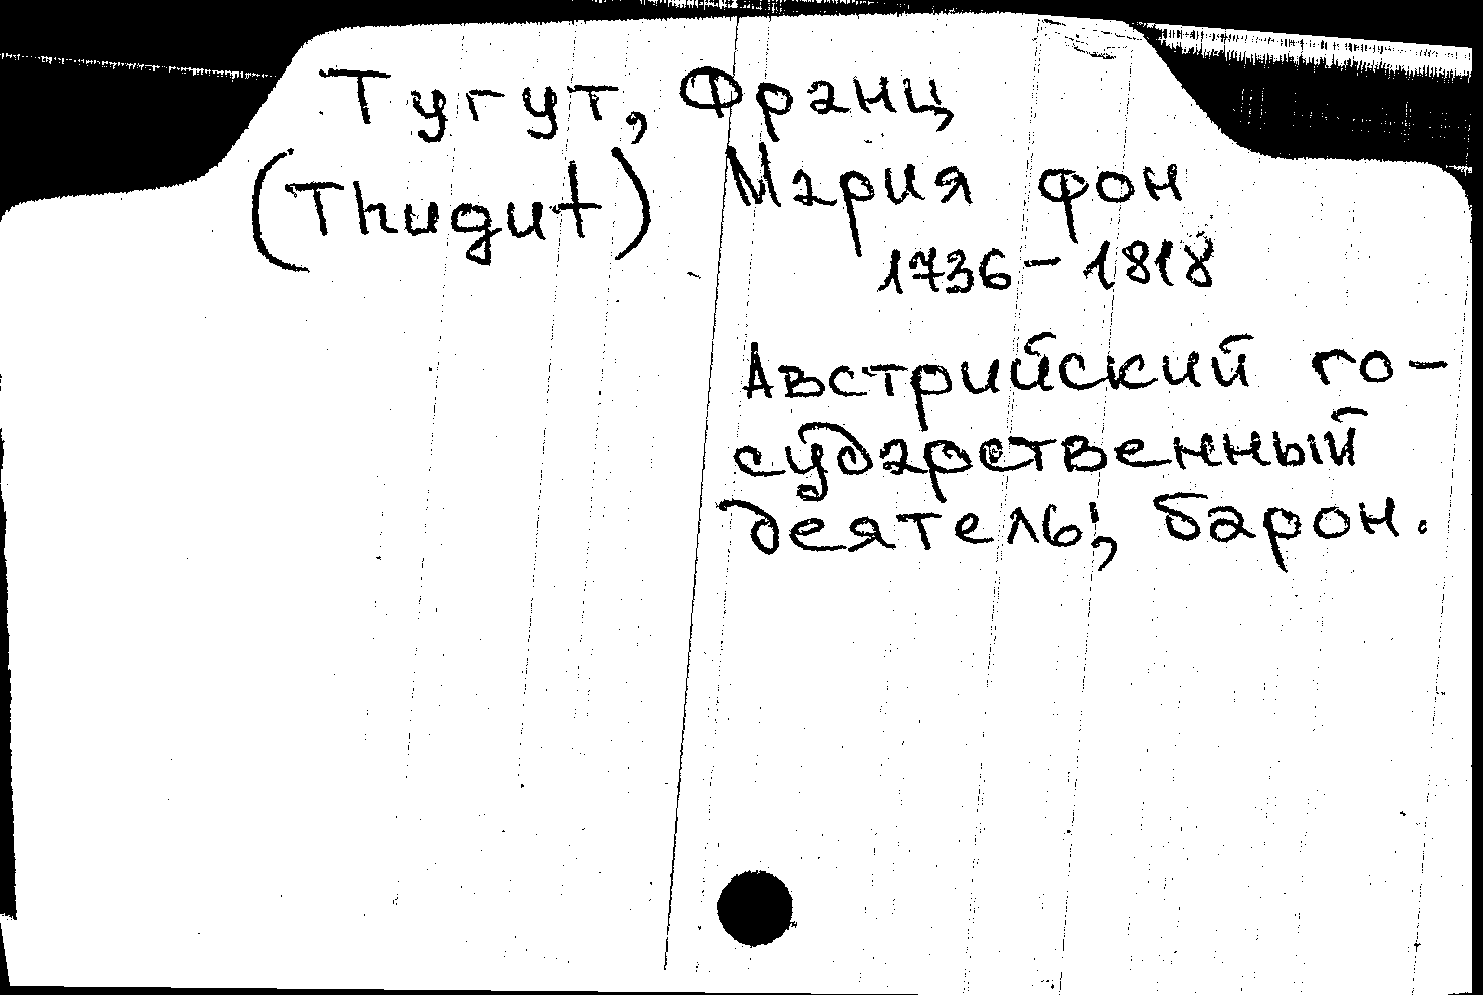 Тугут, Франц
(Thugut) Мария фон
1736-1818
Австрийский го-
сударственный
деятель, барон.